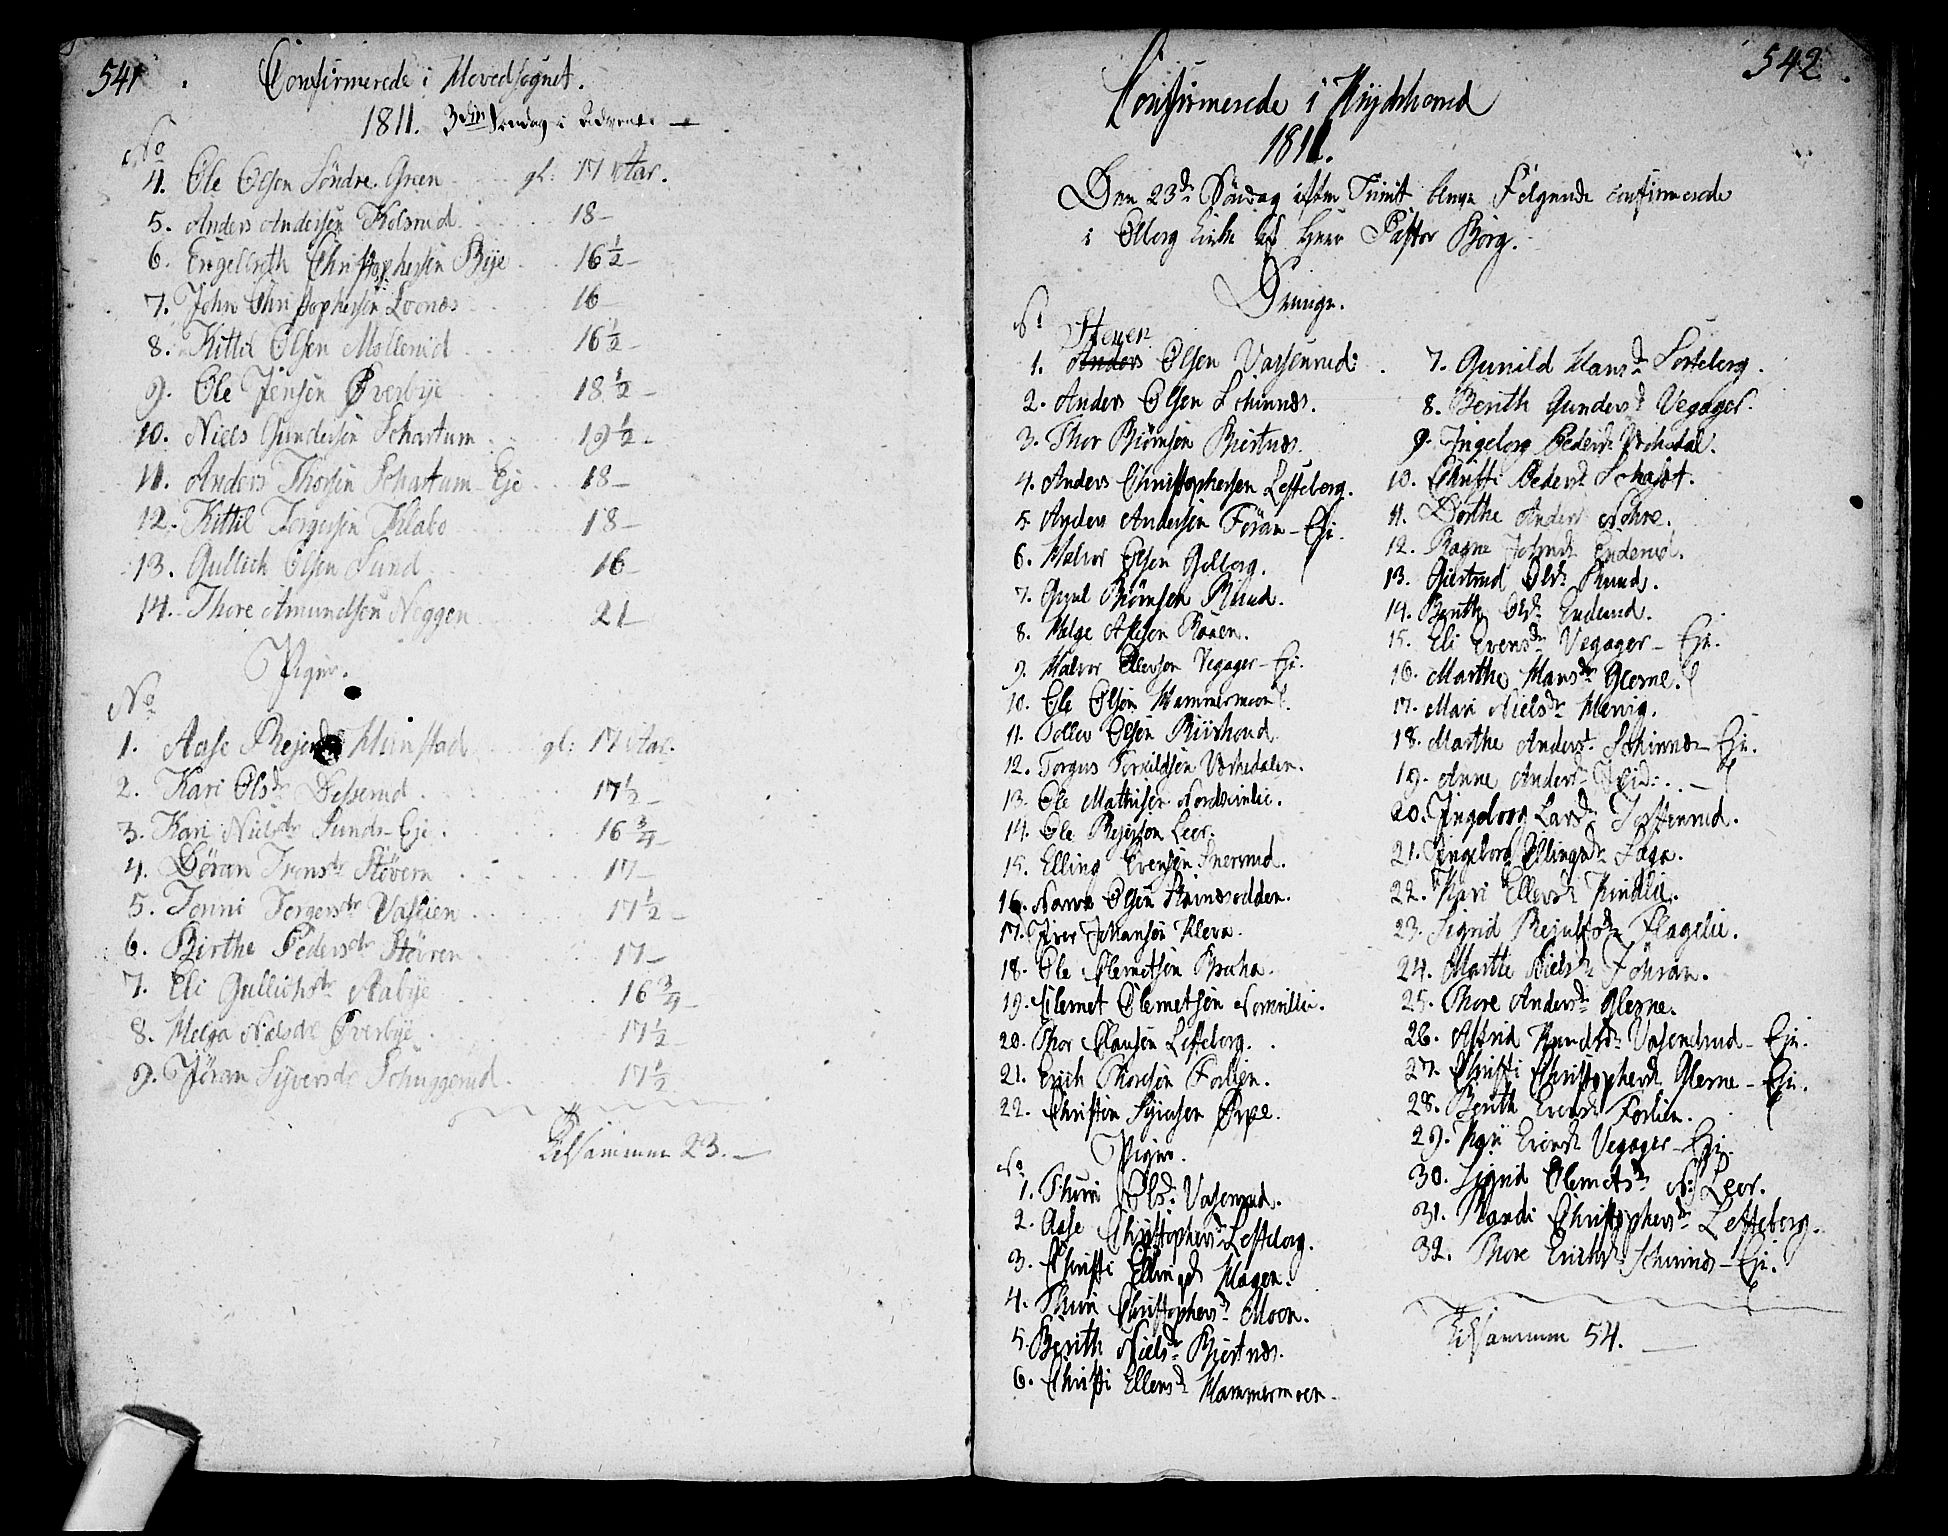 541
Confirmerede i Hovedsognet.
1811. 3die Søndag i Advent. —
No
4. Ole Olsen Søndre Gren gl: 17 Aar.
5. Anders Andersen Kolsrud 18 —
6. Engelbreth Christophersen Bye 16 1/2 —
7. John Christophersen Loenæs 16 —
8. Kittil Olsen Mollerud 16 1/2 —
9. Ole Jensen Øverbye 18 1/2 —
10. Niels Gundersen Schartum 19 1/2 —
11. Anders Thorsen Schartum-Eje 18 —
12. Kittil Torgersen Klabo 18 —
13. Gullich Olsen Sund 16 —
14. Thore Amundsen Neggen 21 —
Piger.
No
1. Aase Mimstad gl: 17 Aar.
2. Kari Olsdr Desserud 17 1/2 —
3. Kari Nielsdr Sunds-Eje 16 3/4 —
4. Døran Ivensdr Støvern 17 —
5. Jonni Torgersdr Vaslien 17 1/2 —
6. Birthe Pedersdr Støvren 17 —
7. Eli Gullichsdr Aabye 16 3/4 —
8. Helga Nielsdr Øverbye 17 1/2
9. Jøran Syversdr Schuggerud 17 1/2
Tilsammen 23. —
542
Confirmerede i Krydsherred
1811.
Den 23de Søndag efter Trinit bleve Følgende confirmerede
i Olberg Kirke af Herr Pastor Borg.
Drenge.
No Steven
1. Anders Olsen Vassenrud.
2. Anders Olsen Schinnes.
3. Thor Biørnsen Biertnæs.
4. Anders Christophersen Lesteberg.
5. Anders Andersen Føran-Eje.
6. Halvor Olsen Golberg.
7. Biørnsen Ruud.
8. Helge Roaen.
9. Halvor Ellevsen Vegager-Eje.
10. Ole Olsen Hammermoen
11. Tollev Olsen
12. Torgus Torkildsen Værhedalen.
13. Ole Mathisen
14. Ole Rejersen Leer.
15. Elling Evensen Snersrud.
16. Narve Olsen
17. Iver Johansen Kleva.
18. Ole Clemetsen Braha.
19. Clemet Clemetsen
20. Thor Clausen Lesteberg.
21. Erich Thoresen Forlien.
22. Christen Ørpe.
Piger.
No
1. Thuri Olsd. Vasenrud.
2. Aase Christophersdr Lesteberg.
3. Christi Ellingsdr Hagen.
4. Thuri Christophersdr Moen.
5. Berith Nielsdr Biertnæs.
6. Christi Ellensdr Hammermoen.
7. Gunild Hansdr Sorteberg.
8. Berith Gundersdr Vegager.
9. Ingeborg Pedersdr
10. Christi Pedersdr
11. Dorthe Andersdr
12. Ragne Johnsdr Enderud.
13. Giertrud Olsdr Ruud.
14. Berith Olsdr Enderud.
15. Eli Evensdr Vegager — Eje.
16. Marthe Hansdr Glesne.
17. Mari Nielsdr Henrig.
18. Marthe Andersdr Schinnes-Eje.
19. Anne Andersdr
20. Ingeborg Larsdr
21. Ingeborg Ellingsdr Saga.
22. Kari Ellevsdr
23. Sigrid
24. Marthe Nielsdr
25. Thore Andersdr Glesne.
26. Astrid Knudsdr Vasendrud-Eje.
27. Christi Christophersdr Glesne-Eje.
28. Berith Evensdr Forlien.
29. Kari Evensdr Vegager-Eje.
30. Sigrid Clemetsdr N: Leer.
31. Randi Christophersdr Lesteberg.
32. Thore Erichsdr Schinnes-Eje.
Tilsammen 54. —